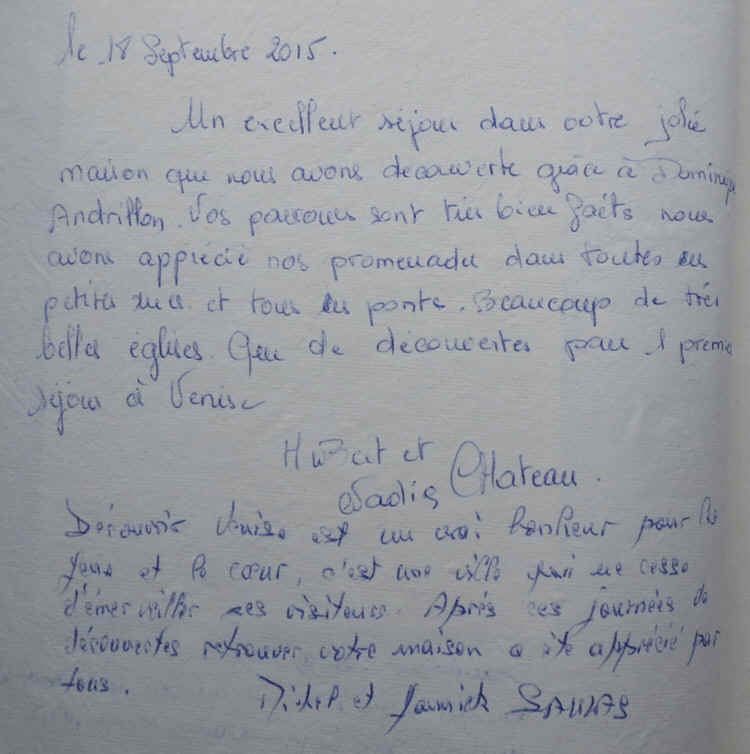 le 18 Septembre 2015.
Un excellent séjour dans votre jolie
maison que nous avons découverte grâce à Dominique
Andrillon. Vos parcours sont très bien faits nous
avons apprécié nos promenades dans toutes les
petites rues et tous les ponts. Beaucoup de très
belles églises. Que de découvertes pour 1 premier
séjour à Venise
Hubert et
Nadia Chateau.
Découvrir Venise est un vrai bonheur pour les
yeux et le cœur, c'est une ville qui ne cesse
d'émerveiller ses visiteurs. Après ces journées de
découvertes retrouver votre maison a été apprécié par
tous.
Michel et Yannick